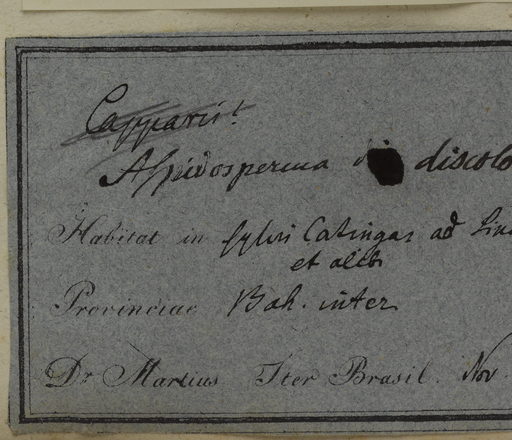 Capparis?
Aspidosperma discolo
Habitat in sylvis Catingas ad
et alibi
Provinciae Bah. inter
Dr. Martius Iter Brasil. Nov.